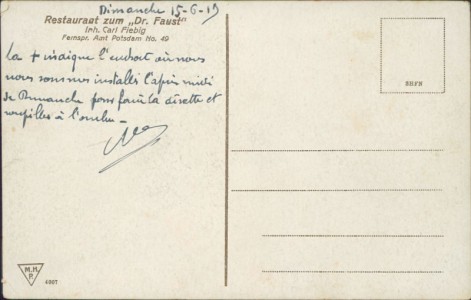 Dimanche 15-6-19
Restaurant zum „Dr. Faust"
Inh. Carl Fiebig
Fernspr. Amt Potsdam No. 49
la + indique l'endroit où nous
nous sommes installés l'après midi
de Dimanche pour faire la dinette et
roupiller à l'ombre -
SHFN
M.H.
P.
4007